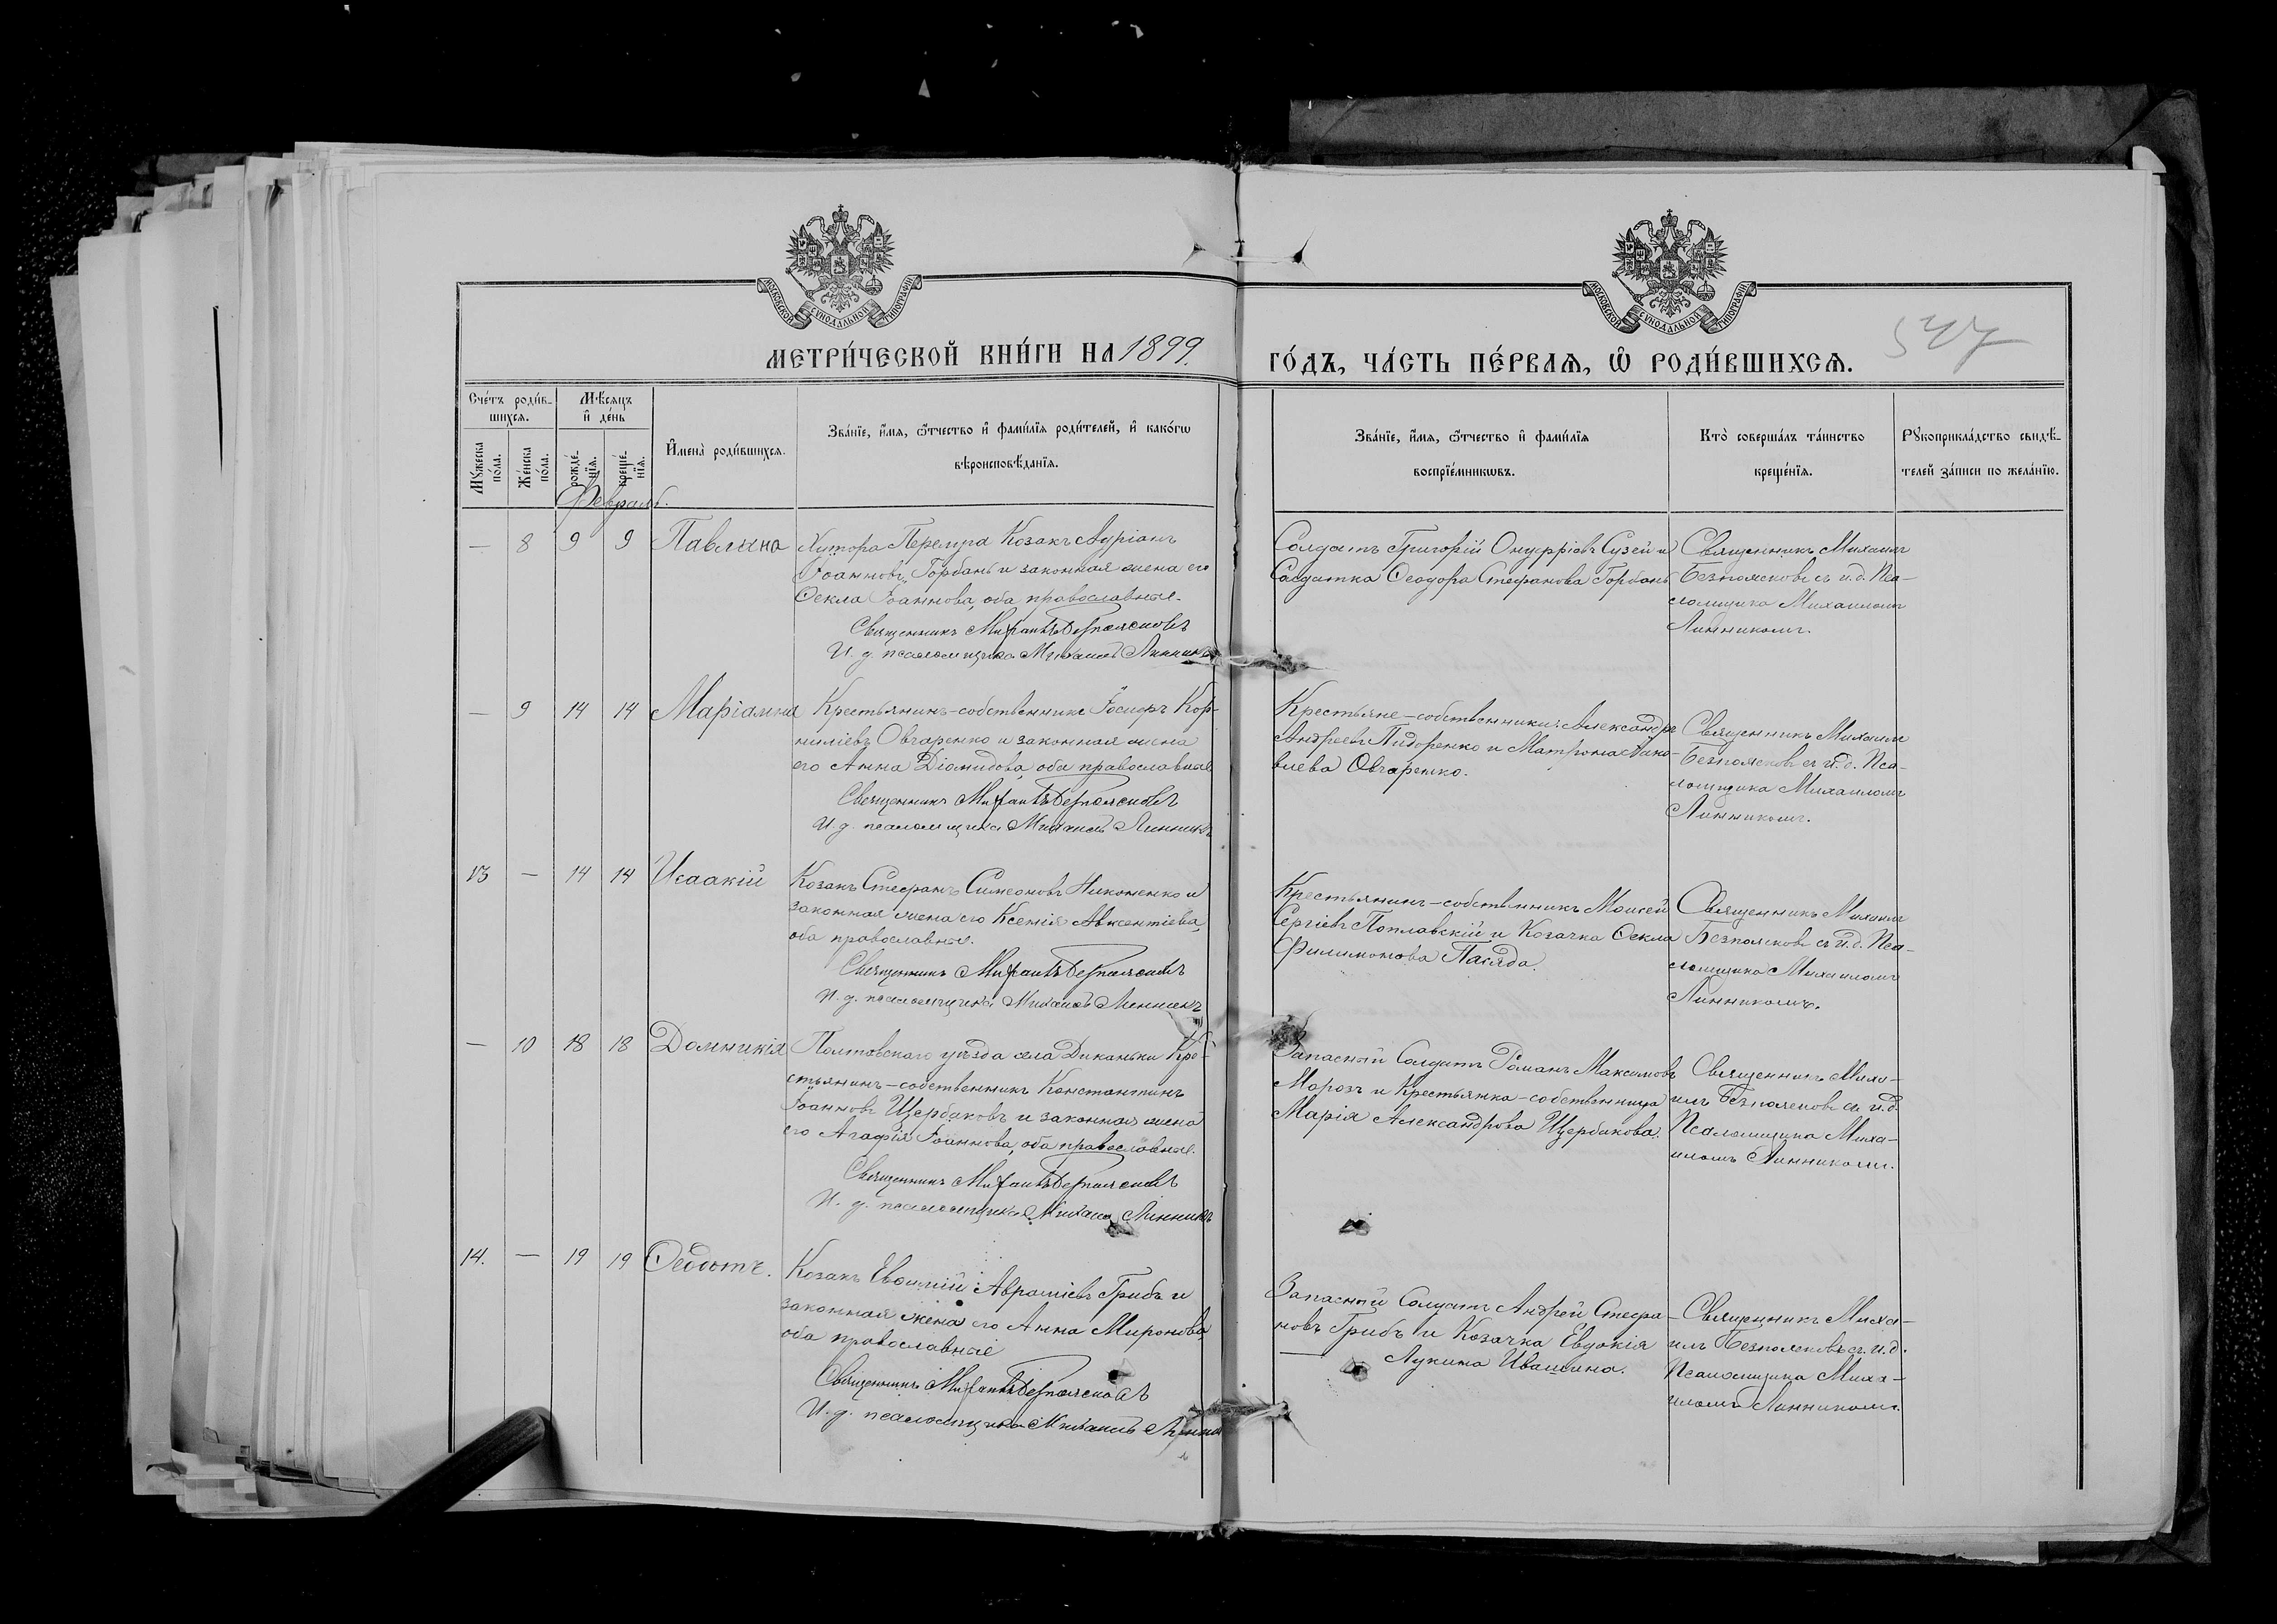 МОСКОВСКОЙ СУНОДАЛЬНОЙ ТИПОГРАФІИ
МОСКОВСКОЙ СУНОДАЛЬНОЙ ТИПОГРАФІИ
МЕТРИ́ЧЕСКОЙ КНИ́ГИ НА 1899.
ГО́ДЪ, ЧА́СТЬ ПЕ́РВАѦ, Ѡ҆ РОДИ́ВШИХСѦ.
547
Сче́тъ роди́в-
шихсѧ.
Мѣ́сѧцъ
и҆ де́нь
Мꙋ́жеска по́ла.
Же́нска по́ла.
рожде́-
нїѧ.
креще́-
нїѧ.
И҆мена̀ роди́вшихсѧ.
Зва́нїе, и҆́мѧ, ѻ҆́тчество и҆ фами́лїѧ роди́телей, и҆ како́гѡ
вѣроисповѣ́данїѧ.
Зва́нїе, и҆́мѧ, ѻ҆́тчество и҆ фами́лїѧ
воспрїе́мникѡвъ.
Кто̀ соверша́лъ та́инство
креще́нїѧ.
Рꙋкоприкла́дство свидѣ́-
телей за́писи по жела́нїю.
Февраль.
— 8 9 9 Павлина
Хутора Перемра Козакъ Андріанъ
Іоанновъ Горбань и законная жена его
Ѳекла Іоаннова, оба православные.
Священникъ Михаилъ Безпоясковъ
И. д. псаломщика Михаилъ Линникъ
Солдатъ Григорій Онуфріевъ Сузей и
Солдатка Ѳеодора Стефанова Горбань
Священникъ Михаилъ
Безпоясковъ съ и. д. Пса-
ломщика Михаиломъ
Линникомъ.
— 9 14 14 Маріамна
Крестьянинъ-собственникъ Іосифъ Кор-
ниліевъ Овчаренко и законная жена
его Анна Діомидова, оба православные
Священникъ Михаилъ Безпоясковъ
И. д. псаломщика Михаилъ Линникъ
Крестьяне-собственники: Александръ
Андреевъ Пидоренко и Матрона Іако-
влева Овчаренко.
Священникъ Михаилъ
Безпоясковъ съ и. д. Пса-
ломщика Михаиломъ
Линникомъ.
13 — 14 14 Исаакій
Козакъ Стефанъ Симеоновъ Никоненко и
законная жена его Ксенія Авксентіева,
оба православные.
Священникъ Михаилъ Безпоясковъ
И. д. псаломщика Михаилъ Линникъ
Крестьянинъ-собственникъ Моисей
Сергіевъ Поплавскій и Козачка Ѳекла
Филимонова Пасяда.
Священникъ Михаилъ
Безпоясковъ съ и. д. Пса-
ломщика Михаиломъ
Линникомъ.
— 10 18 18 Домникія
Полтавскаго уѣзда села Диканьки Кре-
стьянинъ-собственникъ Константинъ
Іоанновъ Щербаковъ и законная жена
его Агафія Іоаннова, оба православные.
Священникъ Михаилъ Безпоясковъ
И. д. псаломщика Михаилъ Линникъ
Запасный Солдатъ Романъ Максимовъ
Морозъ и Крестьянка-собственница
Марія Александрова Щербакова.
Священникъ Миха-
илъ Безпоясковъ съ и. д.
Псаломщика Миха-
иломъ Линникомъ.
14. — 19 19 Ѳедотъ.
Козакъ Евѳимій Аврамієвъ Грибъ и
законная жена его Анна Миронова,
оба православные
Священникъ Михаилъ Безпоясковъ
И. д. псаломщика Михаилъ Линникъ
Запасный Солдатъ Андрей Стефа-
новъ Грибъ и Козачка Евдокія
Лукина Ивашина.
Священникъ Миха-
илъ Безпоясковъ съ и. д.
Псаломщика Миха-
иломъ Линникомъ.